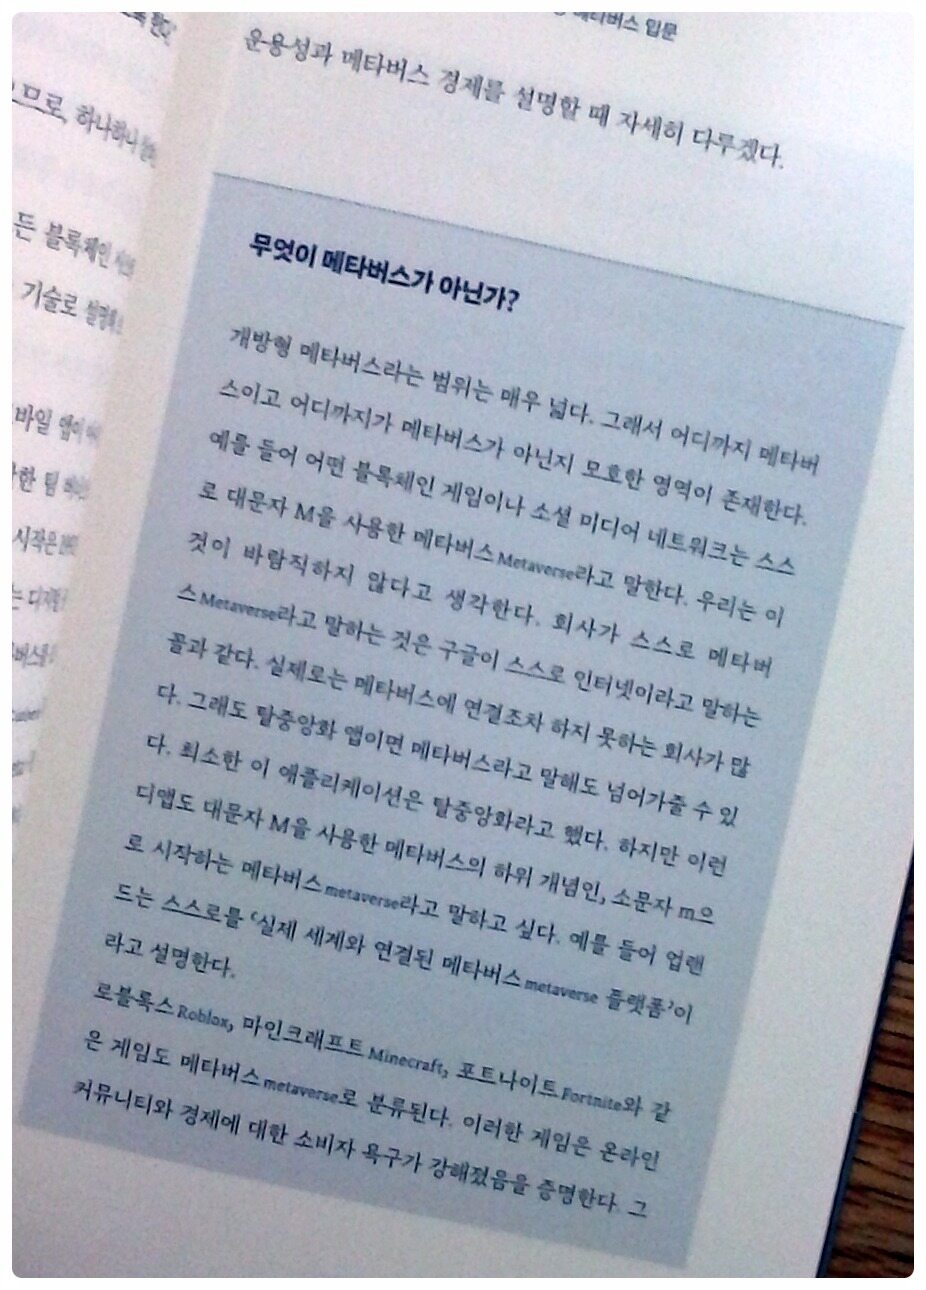 메타버스 입문
운용성과 메타버스 경제를 설명할 때 자세히 다루겠다.
무엇이 메타버스가 아닌가?
개방형 메타버스라는 범위는 매우 넓다. 그래서 어디까지 메타버
스이고 어디까지가 메타버스가 아닌지 모호한 영역이 존재한다.
예를 들어 어떤 블록체인 게임이나 소셜 미디어 네트워크는 스스
로 대문자 M을 사용한 메타버스Metaverse라고 말한다. 우리는 이
것이 바람직하지 않다고 생각한다. 회사가 스스로 메타버
스Metaverse라고 말하는 것은 구글이 스스로 인터넷이라고 말하는
꼴과 같다. 실제로는 메타버스에 연결조차 하지 못하는 회사가 많
다. 그래도 탈중앙화 앱이면 메타버스라고 말해도 넘어가줄 수 있
다. 최소한 이 애플리케이션은 탈중앙화라고 했다. 하지만 이런
디앱도 대문자 M을 사용한 메타버스의 하위 개념인, 소문자 m으
로 시작하는 메타버스metaverse라고 말하고 싶다. 예를 들어 업랜
드는 스스로를 ‘실제 세계와 연결된 메타버스metaverse 플랫폼’이
라고 설명한다.
로블록스Roblox, 마인크래프트Minecraft, 포트나이트Fortnite와 같
은 게임도 메타버스metaverse로 분류된다. 이러한 게임은 온라인
커뮤니티와 경제에 대한 소비자 욕구가 강해졌음을 증명한다. 그
므로, 하나하나
든 블록체인
기술로
바일 앱이
한 팀
시작은